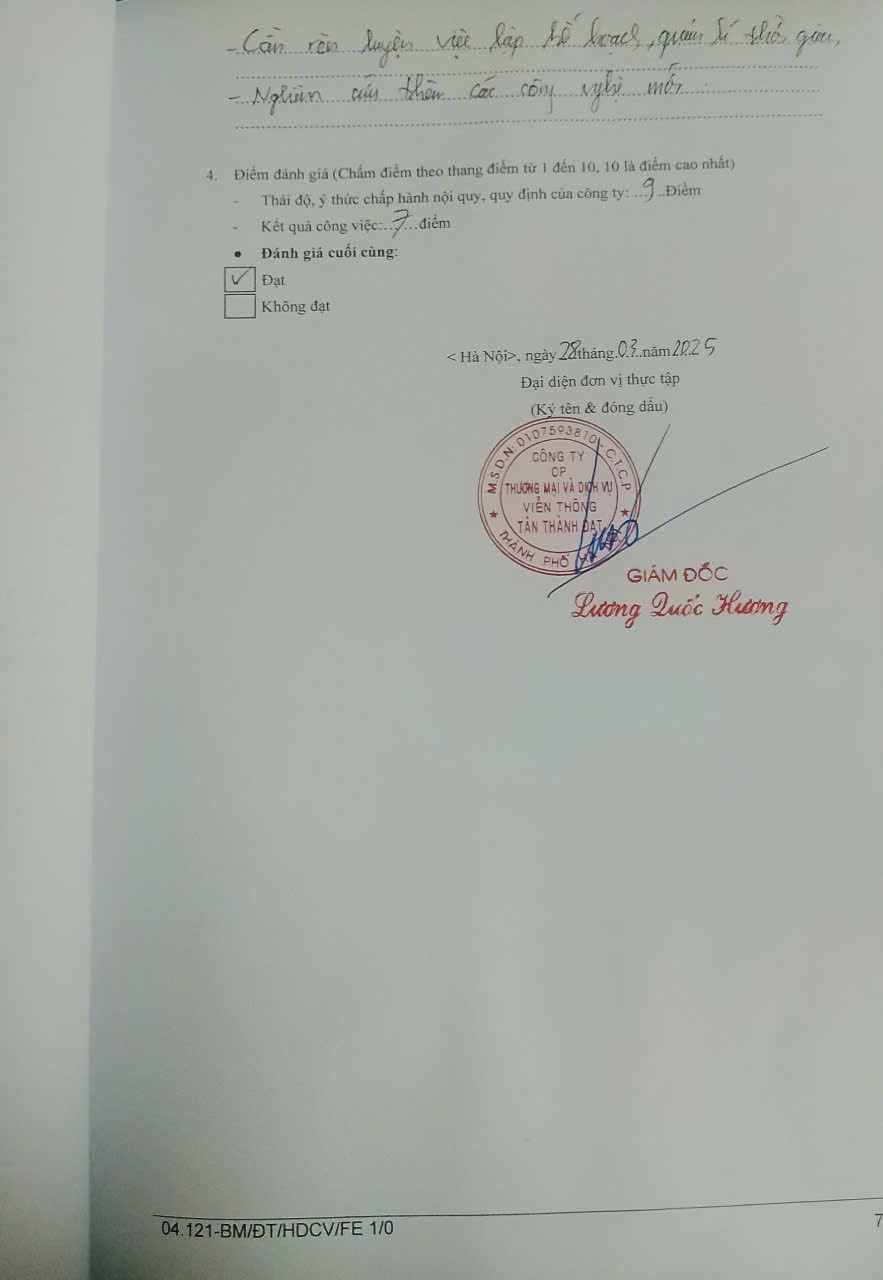 - Cần rèn luyện việc lập kế hoạch, quản lí thời gian,
- Nghiên cứu thêm các công nghệ mới
4. Điểm đánh giá (Chấm điểm theo thang điểm từ 1 đến 10, 10 là điểm cao nhất)
- Thái độ, ý thức chấp hành nội quy, quy định của công ty: ...9...Điểm
- Kết quả công việc:...7...điểm
• Đánh giá cuối cùng:
✓ Đạt
Không đạt
< Hà Nội>, ngày 28 tháng.03..năm 2025
Đại diện đơn vị thực tập
(Ký tên & đóng dấu)
M.S.D.N: 0107593810 - C.T.C.P
CÔNG TY
CP
THƯƠNG MẠI VÀ DỊCH VỤ
VIỄN THÔNG
TÂN THÀNH ĐẠT
THÀNH PHỐ
GIÁM ĐỐC
Lương Quốc Hương
04.121-BM/ĐT/HDCV/FE 1/0
7